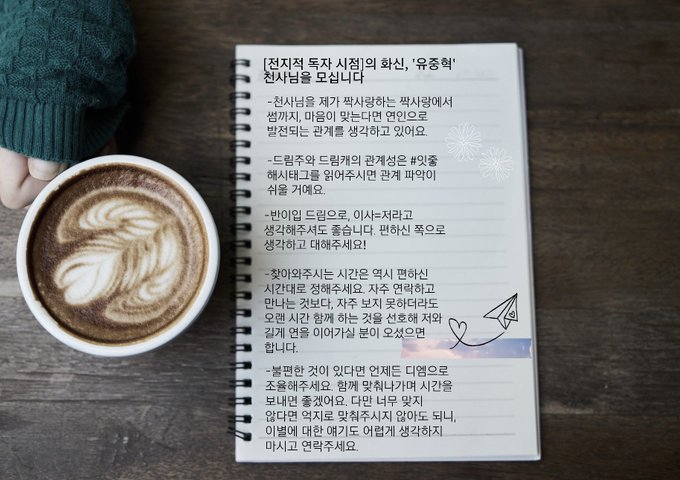 [전지적 독자 시점]의 화신, '유중혁'
천사님을 모십니다
-천사님을 제가 짝사랑하는 짝사랑에서
썸까지, 마음이 맞는다면 연인으로
발전되는 관계를 생각하고 있어요.
-드림주와 드림캐의 관계성은 #잇줄
해시태그를 읽어주시면 관계 파악이
쉬울 거예요.
-반이입 드림으로, 이사=저라고
생각해주셔도 좋습니다. 편하신 쪽으로
생각하고 대해주세요!
-찾아와주시는 시간은 역시 편하신
시간대로 정해주세요. 자주 연락하고
만나는 것보다, 자주 보지 못하더라도
오랜 시간 함께 하는 것을 선호해 저와
길게 연을 이어가실 분이 오셨으면
합니다.
-불편한 것이 있다면 언제든 디엠으로
조율해주세요. 함께 맞춰나가며 시간을
보내면 좋겠어요. 다만 너무 맞지
않다면 억지로 맞춰주시지 않아도 되니,
이별에 대한 얘기도 어렵게 생각하지
마시고 연락주세요.